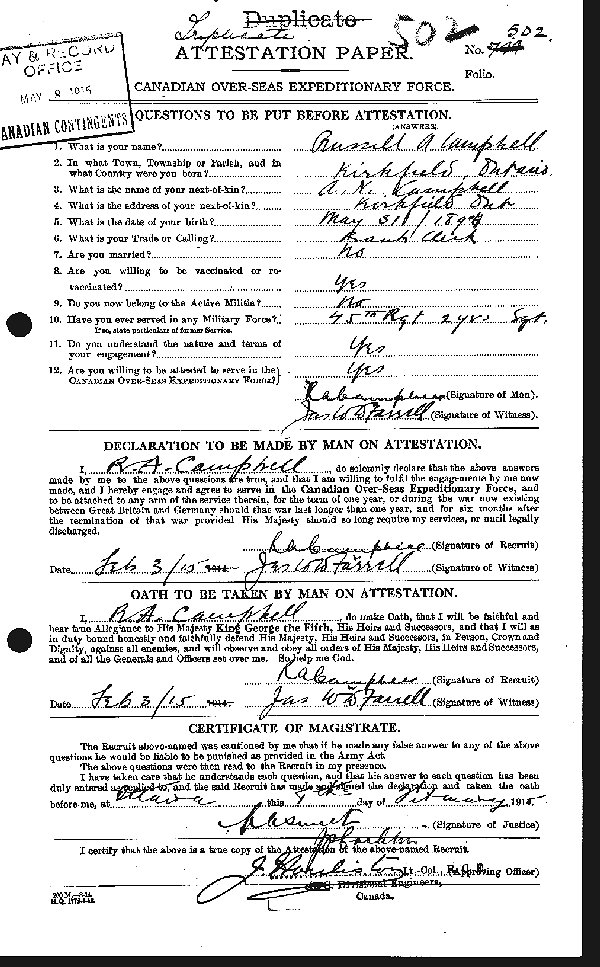 Duplicate
Triplicate
502
502.
No.
ATTESTATION PAPER.
Folio.
AY & RECORD
OFFICE
MAY 8 1915
ANADIAN CONTINGENTS
CANADIAN OVER-SEAS EXPEDITIONARY FORCE.
QUESTIONS TO BE PUT BEFORE ATTESTATION.
(ANSWERS)
1. What is your name? Russell A Campbell
2. In what Town, Township or Parish, and in
what Country were you born? Kirkfield, Ontario
3. What is the name of your next-of-kin? A. N. Campbell
4. What is the address of your next-of-kin? Kirkfield Ont
5. What is the date of your birth? May 31 / 1894
6. What is your Trade or Calling? Bank Clerk
7. Are you married? No
8. Are you willing to be vaccinated or re-
vaccinated? Yes
9. Do you now belong to the Active Militia? No
10. Have you ever served in any Military Force? 45th Rgt 2 yrs Sgt.
If so, state particulars of former Service.
11. Do you understand the nature and terms of
your engagement? Yes
12. Are you willing to be attested to serve in the
CANADIAN OVER-SEAS EXPEDITIONARY FORCE? Yes
RA Campbell (Signature of Man).
Jas W D Farrell (Signature of Witness).
DECLARATION TO BE MADE BY MAN ON ATTESTATION.
I, R. A. Campbell, do solemnly declare that the above answers
made by me to the above questions are true, and that I am willing to fulfil the engagements by me now
made, and I hereby engage and agree to serve in the Canadian Over-Seas Expeditionary Force, and
to be attached to any arm of the service therein, for the term of one year, or during the war now existing
between Great Britain and Germany should that war last longer than one year, and for six months after
the termination of that war provided His Majesty should so long require my services, or until legally
discharged.
RA Campbell (Signature of Recruit)
Date Feb 3/15 1914. Jas W D Farrell (Signature of Witness)
OATH TO BE TAKEN BY MAN ON ATTESTATION.
I, R. A. Campbell, do make Oath, that I will be faithful and
bear true Allegiance to His Majesty King George the Fifth, His Heirs and Successors, and that I will as
in duty bound honestly and faithfully defend His Majesty, His Heirs and Successors, in Person, Crown and
Dignity, against all enemies, and will observe and obey all orders of His Majesty, His Heirs and Successors,
and of all the Generals and Officers set over me. So help me God.
RA Campbell (Signature of Recruit)
Date Feb 3/15 1914. Jas W D Farrell (Signature of Witness)
CERTIFICATE OF MAGISTRATE.
The Recruit above-named was cautioned by me that if he made any false answer to any of the above
questions he would be liable to be punished as provided in the Army Act.
The above questions were then read to the Recruit in my presence.
I have taken care that he understands each question, and that his answer to each question has been
duly entered as replied to, and the said Recruit has made and signed the declaration and taken the oath
before me, at Ottawa this day of February 1915.
(Signature of Justice)
I certify that the above is a true copy of the Attestation of the above-named Recruit.
Lt-Col. R.C.E. (Approving Officer)
Divisional Engineers,
Canada.